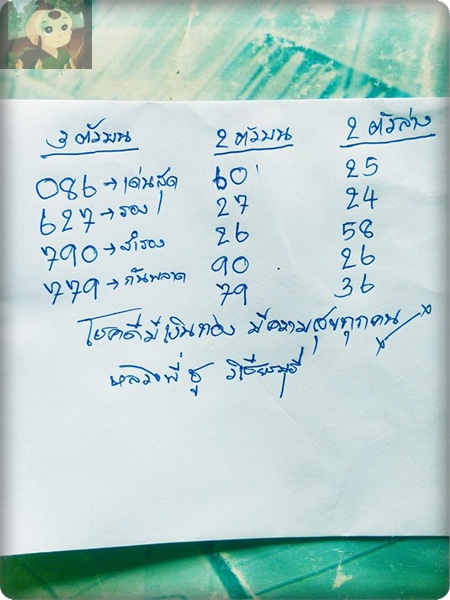 3 ตัวบน 2 ตัวบน 2 ตัวล่าง
086 → เด่นสุด 60 25
627 → รอง 27 24
790 → สำรอง 26 58
779 → กันพลาด 90 26
79 36
โชคดีมีเงินทอง มีความสุขทุกคน
หลวงพี่